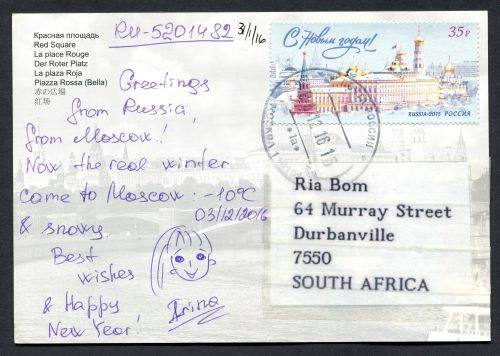 RU-5201482
3/1/16
Красная площадь
Red Square
La place Rouge
Der Roter Platz
La plaza Roja
Piazza Rossa (Bella)
赤の広場
红场
Greetings
from Russia,
from Moscow!
Now the real winter
came to Moscow: -10°C
03/12/2016
& snowy.
Best
wishes
& Happy
New Year!
Irina
С Новым годом!
35р
RUSSIA·2015 РОССИЯ
РОССИЯ
МОСКВА
12 16 16
Ria Bom
64 Murray Street
Durbanville
7550
SOUTH AFRICA